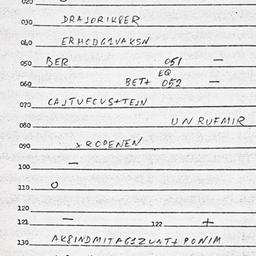 020
030 DRAJORIK8ER
040 ERHCDG1VAKSN
050 BER 051 —
EQ
060 BETT 052 —
070 CAJTUFCUS+TEJN
080 UN RUFMIR
090 XRODENEN
100 —
110 O
120
121 — 122 +
130 AK8INDMITAG1ZUNT+PONIM